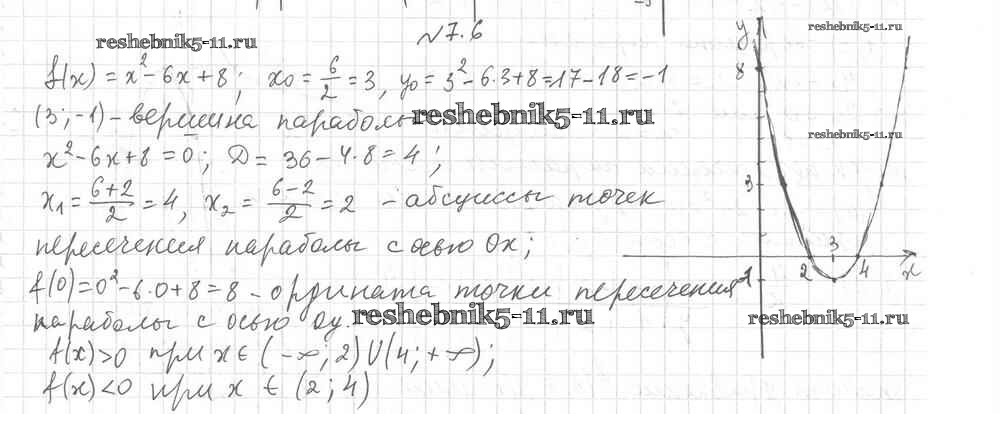 №7.6
reshebnik5-11.ru
f(x) = x²-6x+8; x₀ = 6/2 = 3, y₀ = 3²-6·3+8=17-18=-1
(3;-1) - вершина параболы
reshebnik5-11.ru
x²-6x+8=0; D = 36-4·8=4;
x₁ = (6+2)/2 = 4, x₂ = (6-2)/2 = 2 - абсциссы точек
пересечения параболы с осью Ox;
f(0)=0²-6·0+8=8 - ордината точки пересечения
параболы с осью Oy.
reshebnik5-11.ru
f(x)>0 при x∈(-∞;2)U(4;+∞);
f(x)<0 при x ∈ (2;4)
y
8
reshebnik5-11.ru
3
3
-1
2
4
x
reshebnik5-11.ru